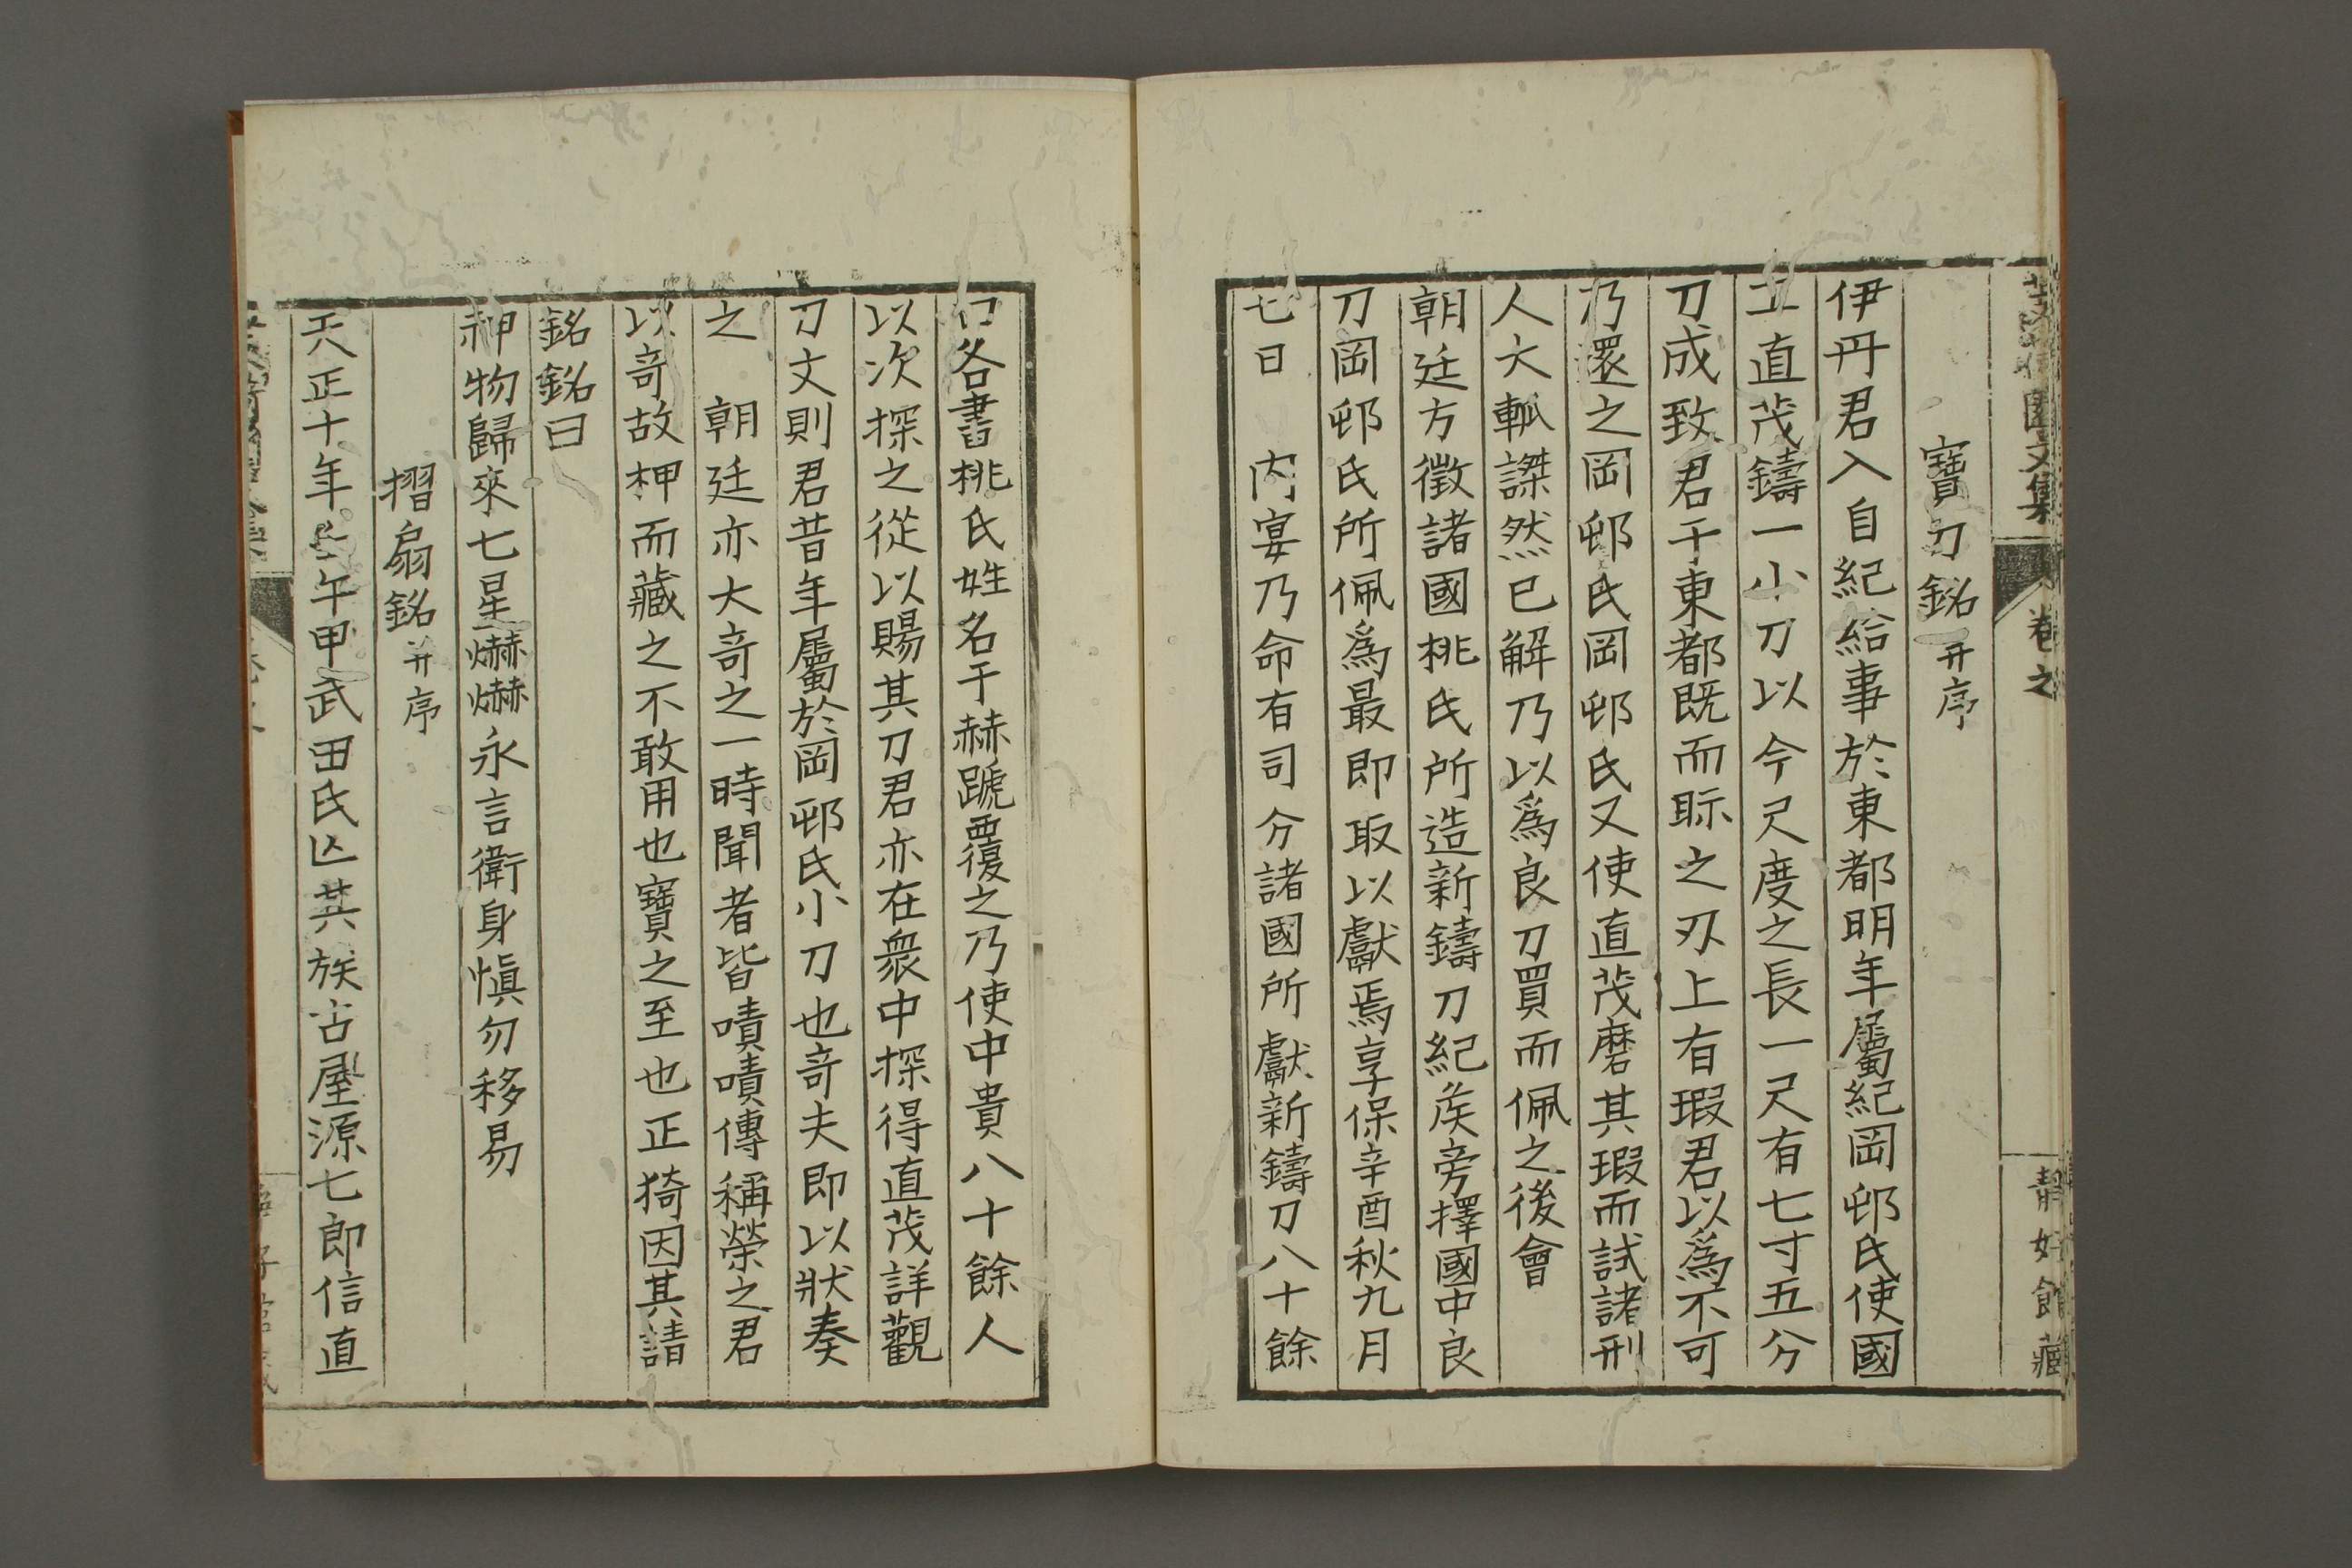 園文集 卷之
靜好館藏
寶刀銘并序
伊丹君入自紀給事於東都明年屬紀岡邨氏使國
工直茂鑄一小刀以今尺度之長一尺有七寸五分
刀成致君于東都既而眎之刃上有瑕君以為不可
乃還之岡邨氏岡邨氏又使直茂磨其瑕而試諸刑
人大軱謋然已解乃以為良刀買而佩之後會
朝廷方徵諸國桃氏所造新鑄刀紀矦旁擇國中良
刀岡邨氏所佩為最即取以獻焉享保辛酉秋九月
七日 內宴乃命有司分諸國所獻新鑄刀八十餘
口各書桃氏姓名于赫蹏覆之乃使中貴八十餘人
以次探之從以賜其刀君亦在衆中探得直茂詳觀
刀文則君昔年屬於岡邨氏小刀也奇夫即以狀奏
之 朝廷亦大奇之一時聞者皆嘖嘖傳稱榮之君
以奇故柙而藏之不敢用也寶之至也正猗因其請
銘銘曰
神物歸來七星爀爀永言衛身愼勿移易
摺扇銘并序
天正十年壬午甲武田氏亾其族古屋源七郎信直